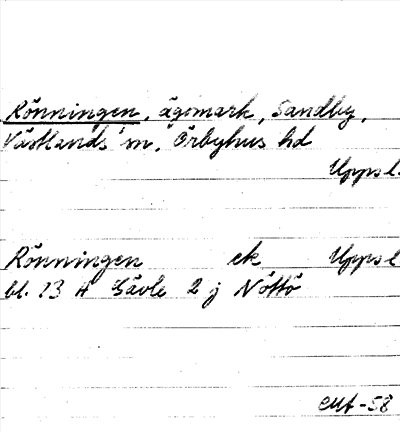 Rönningen, ägomark, Sandby,
Västlands sn, Örbyhus hd
Upps l.
Rönningen ek Upps l
bl. 13 H Gävle 2 j Nöttö